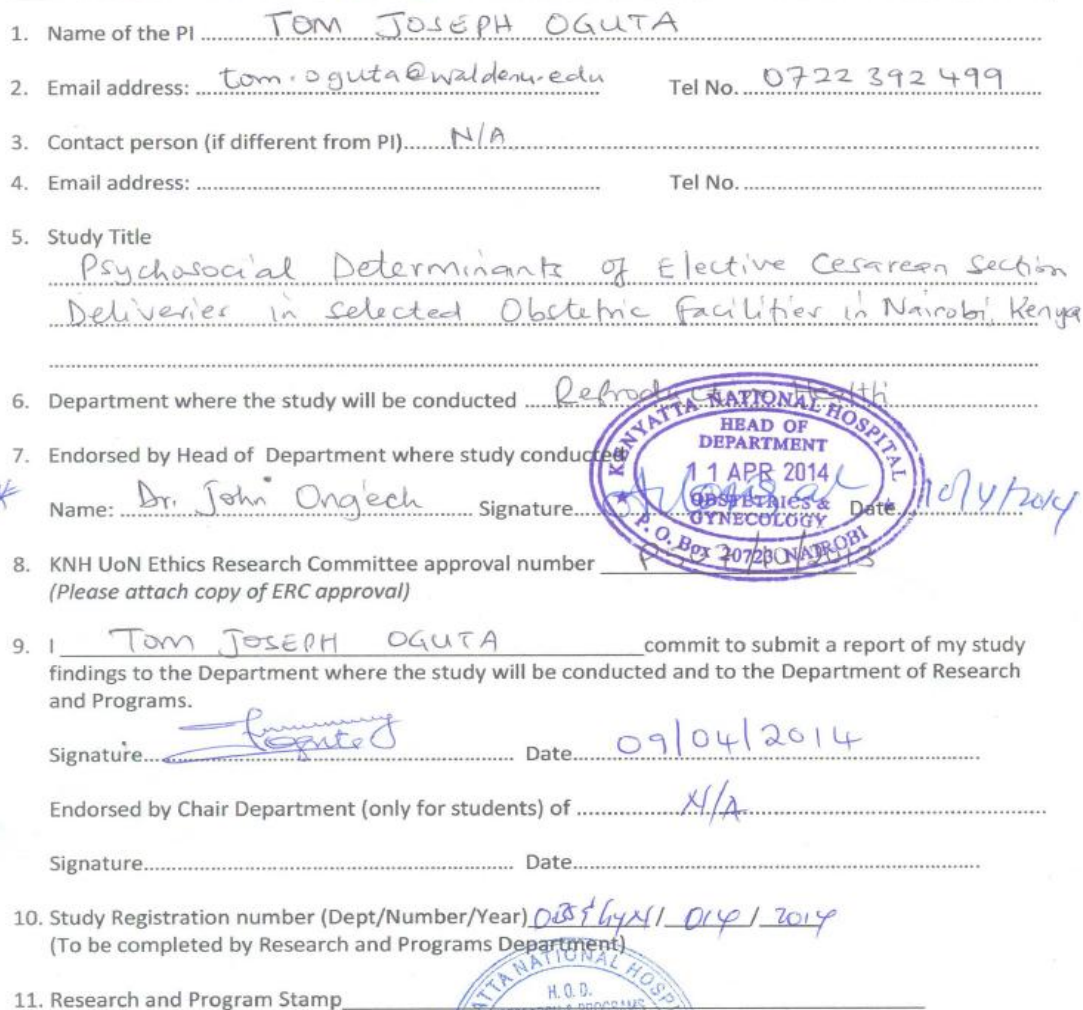 1. Name of the PI TOM JOSEPH OGUTA
2. Email address: tom.oguta@waldenu.edu Tel No. 0722 392 499
3. Contact person (if different from PI) N/A
4. Email address: Tel No.
5. Study Title
Psychosocial Determinants of Elective Cesarean Section
Deliveries in selected Obstetric facilities in Nairobi, Kenya
6. Department where the study will be conducted Reproductive Health
KENYATTA NATIONAL HOSPITAL
HEAD OF
DEPARTMENT
11 APR 2014
OBSTETRICS &
GYNECOLOGY
P. O. Box 20723 NAIROBI
7. Endorsed by Head of Department where study conducted
Name: Dr. John Ong'ech Signature Date 10/4/2014
8. KNH UoN Ethics Research Committee approval number /10/2013
(Please attach copy of ERC approval)
9. I TOM JOSEPH OGUTA commit to submit a report of my study
findings to the Department where the study will be conducted and to the Department of Research
and Programs.
Signature Date 09/04/2014
Endorsed by Chair Department (only for students) of N/A
Signature Date
10. Study Registration number (Dept/Number/Year) OBS/GYN/ 014 / 2014
(To be completed by Research and Programs Department)
11. Research and Program Stamp
NATIONAL
H. O. D.